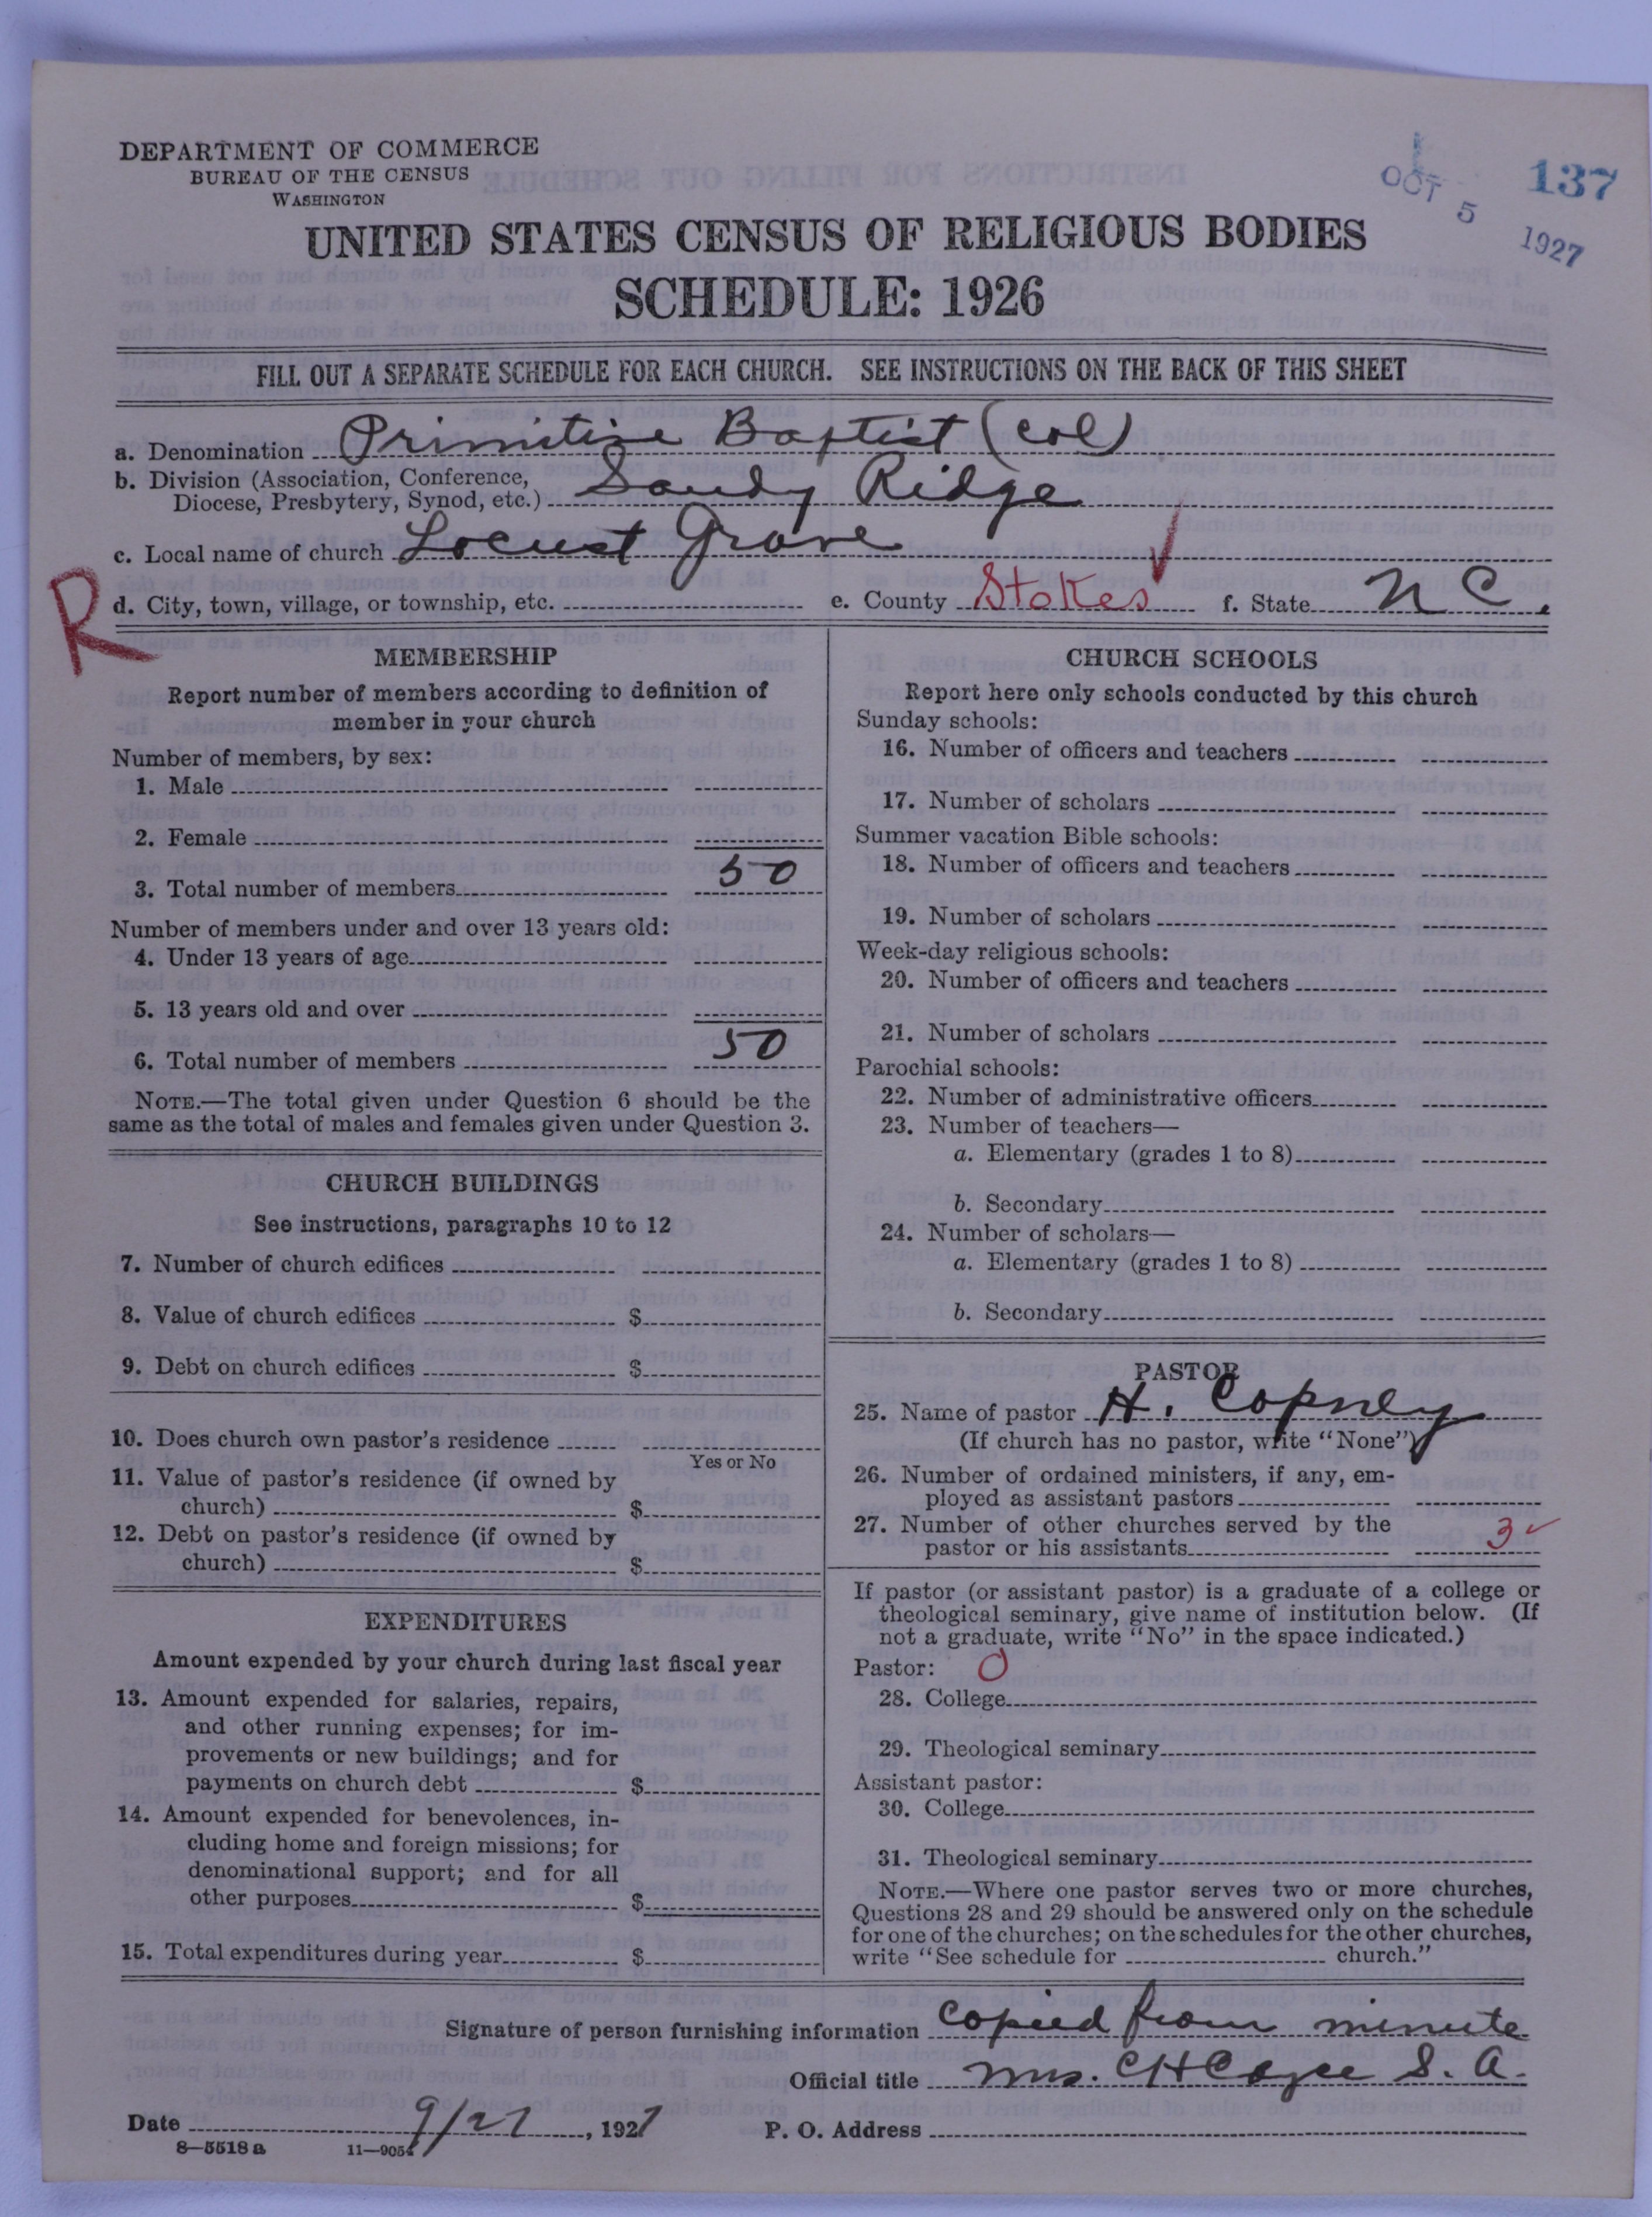 DEPARTMENT OF COMMERCE
BUREAU OF THE CENSUS
WASHINGTON
OCT 5 1927
137
UNITED STATES CENSUS OF RELIGIOUS BODIES
SCHEDULE: 1926
FILL OUT A SEPARATE SCHEDULE FOR EACH CHURCH. SEE INSTRUCTIONS ON THE BACK OF THIS SHEET
a. Denomination Primitive Baptist (Col)
b. Division (Association, Conference,
Diocese, Presbytery, Synod, etc.) Sandy Ridge
c. Local name of church Locust Grove
R
d. City, town, village, or township, etc. e. County Stokes f. State N C.
MEMBERSHIP
Report number of members according to definition of
member in your church
Number of members, by sex:
1. Male
2. Female
3. Total number of members 50
Number of members under and over 13 years old:
4. Under 13 years of age
5. 13 years old and over
6. Total number of members 50
NOTE.—The total given under Question 6 should be the
same as the total of males and females given under Question 3.
CHURCH BUILDINGS
See instructions, paragraphs 10 to 12
7. Number of church edifices
8. Value of church edifices $
9. Debt on church edifices $
10. Does church own pastor's residence
Yes or No
11. Value of pastor's residence (if owned by
church) $
12. Debt on pastor's residence (if owned by
church) $
EXPENDITURES
Amount expended by your church during last fiscal year
13. Amount expended for salaries, repairs,
and other running expenses; for im-
provements or new buildings; and for
payments on church debt $
14. Amount expended for benevolences, in-
cluding home and foreign missions; for
denominational support; and for all
other purposes $
15. Total expenditures during year $
CHURCH SCHOOLS
Report here only schools conducted by this church
Sunday schools:
16. Number of officers and teachers
17. Number of scholars
Summer vacation Bible schools:
18. Number of officers and teachers
19. Number of scholars
Week-day religious schools:
20. Number of officers and teachers
21. Number of scholars
Parochial schools:
22. Number of administrative officers
23. Number of teachers—
a. Elementary (grades 1 to 8)
b. Secondary
24. Number of scholars—
a. Elementary (grades 1 to 8)
b. Secondary
PASTOR
25. Name of pastor H. Copney
(If church has no pastor, write "None")
26. Number of ordained ministers, if any, em-
ployed as assistant pastors
27. Number of other churches served by the
pastor or his assistants 3
If pastor (or assistant pastor) is a graduate of a college or
theological seminary, give name of institution below. (If
not a graduate, write "No" in the space indicated.)
Pastor: 0
28. College
29. Theological seminary
Assistant pastor:
30. College
31. Theological seminary
NOTE.—Where one pastor serves two or more churches,
Questions 28 and 29 should be answered only on the schedule
for one of the churches; on the schedules for the other churches,
write "See schedule for church."
Signature of person furnishing information Copied from minute
Official title Mrs. C H Cayce S. A.
Date 9/27, 1927 P. O. Address
8—5518 a 11—9054